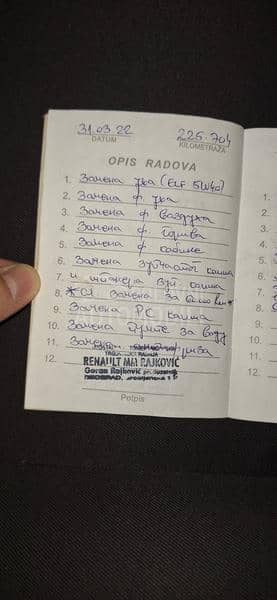 31.03.22 225.704
DATUM KILOMETRAŽA
OPIS RADOVA
1. Замена уља (ELF 5W40)
2. Замена ф. уља
3. Замена ф. ваздуха
4. Замена ф. горива
5. Замена ф. кабине
6. Замена зупчастог каиша
7. и шпанера зуп. каиша
8. Замена
9. Замена PC каиша
10. Замена пумпе за воду
11. Замена
12.
RENAULT MM RAJKOVIĆ
Goran Rajković preduzetnik
BEOGRAD,
Potpis
6.
7.
8.
9.
10.
11.
12.